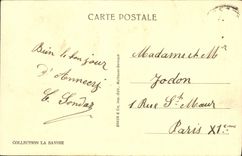 CARTE POSTALE
Bien le bonjour
d'Annecy
Madame et Mr
Jodon
1 Rue St Maur
Paris XIe
COLLECTION LA SAVOIE